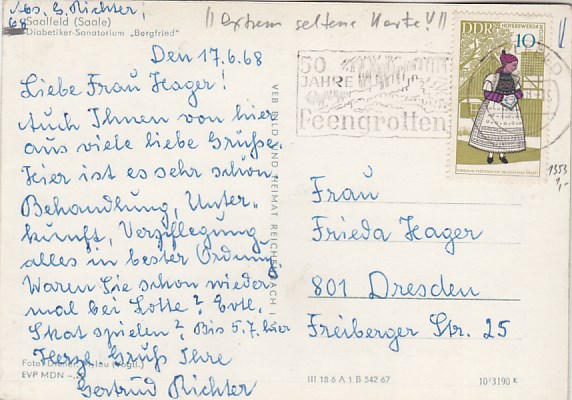 Abs. G. Richter,
68 Saalfeld (Saale)
Diabetiker-Sanatorium „Bergfried“
!! extrem seltene Karte! !!
Den 17.6.68
Liebe Frau Hager!
Auch Ihnen von hier
aus viele liebe Grüße.
Hier ist es sehr schön
Behandlung, Unter-
kunft, Verpflegung
alles in bester Ordnung
Waren Sie schon wieder
mal bei Lotte? Evtl.
Skat spielen? Bis 5.7. hier
Herzl. Gruß Ihre
Gertrud Richter
Foto:
EVP MDN
VEB BILD UND HEIMAT REICHENBACH I. V.
50
JAHRE
Feengrotten
DDR
HOYERSWERDA
10
1353
1,-
Frau
Frieda Hager
801 Dresden
Freiberger Str. 25
III 18 6 A 1 B 542 67
10/3190 K